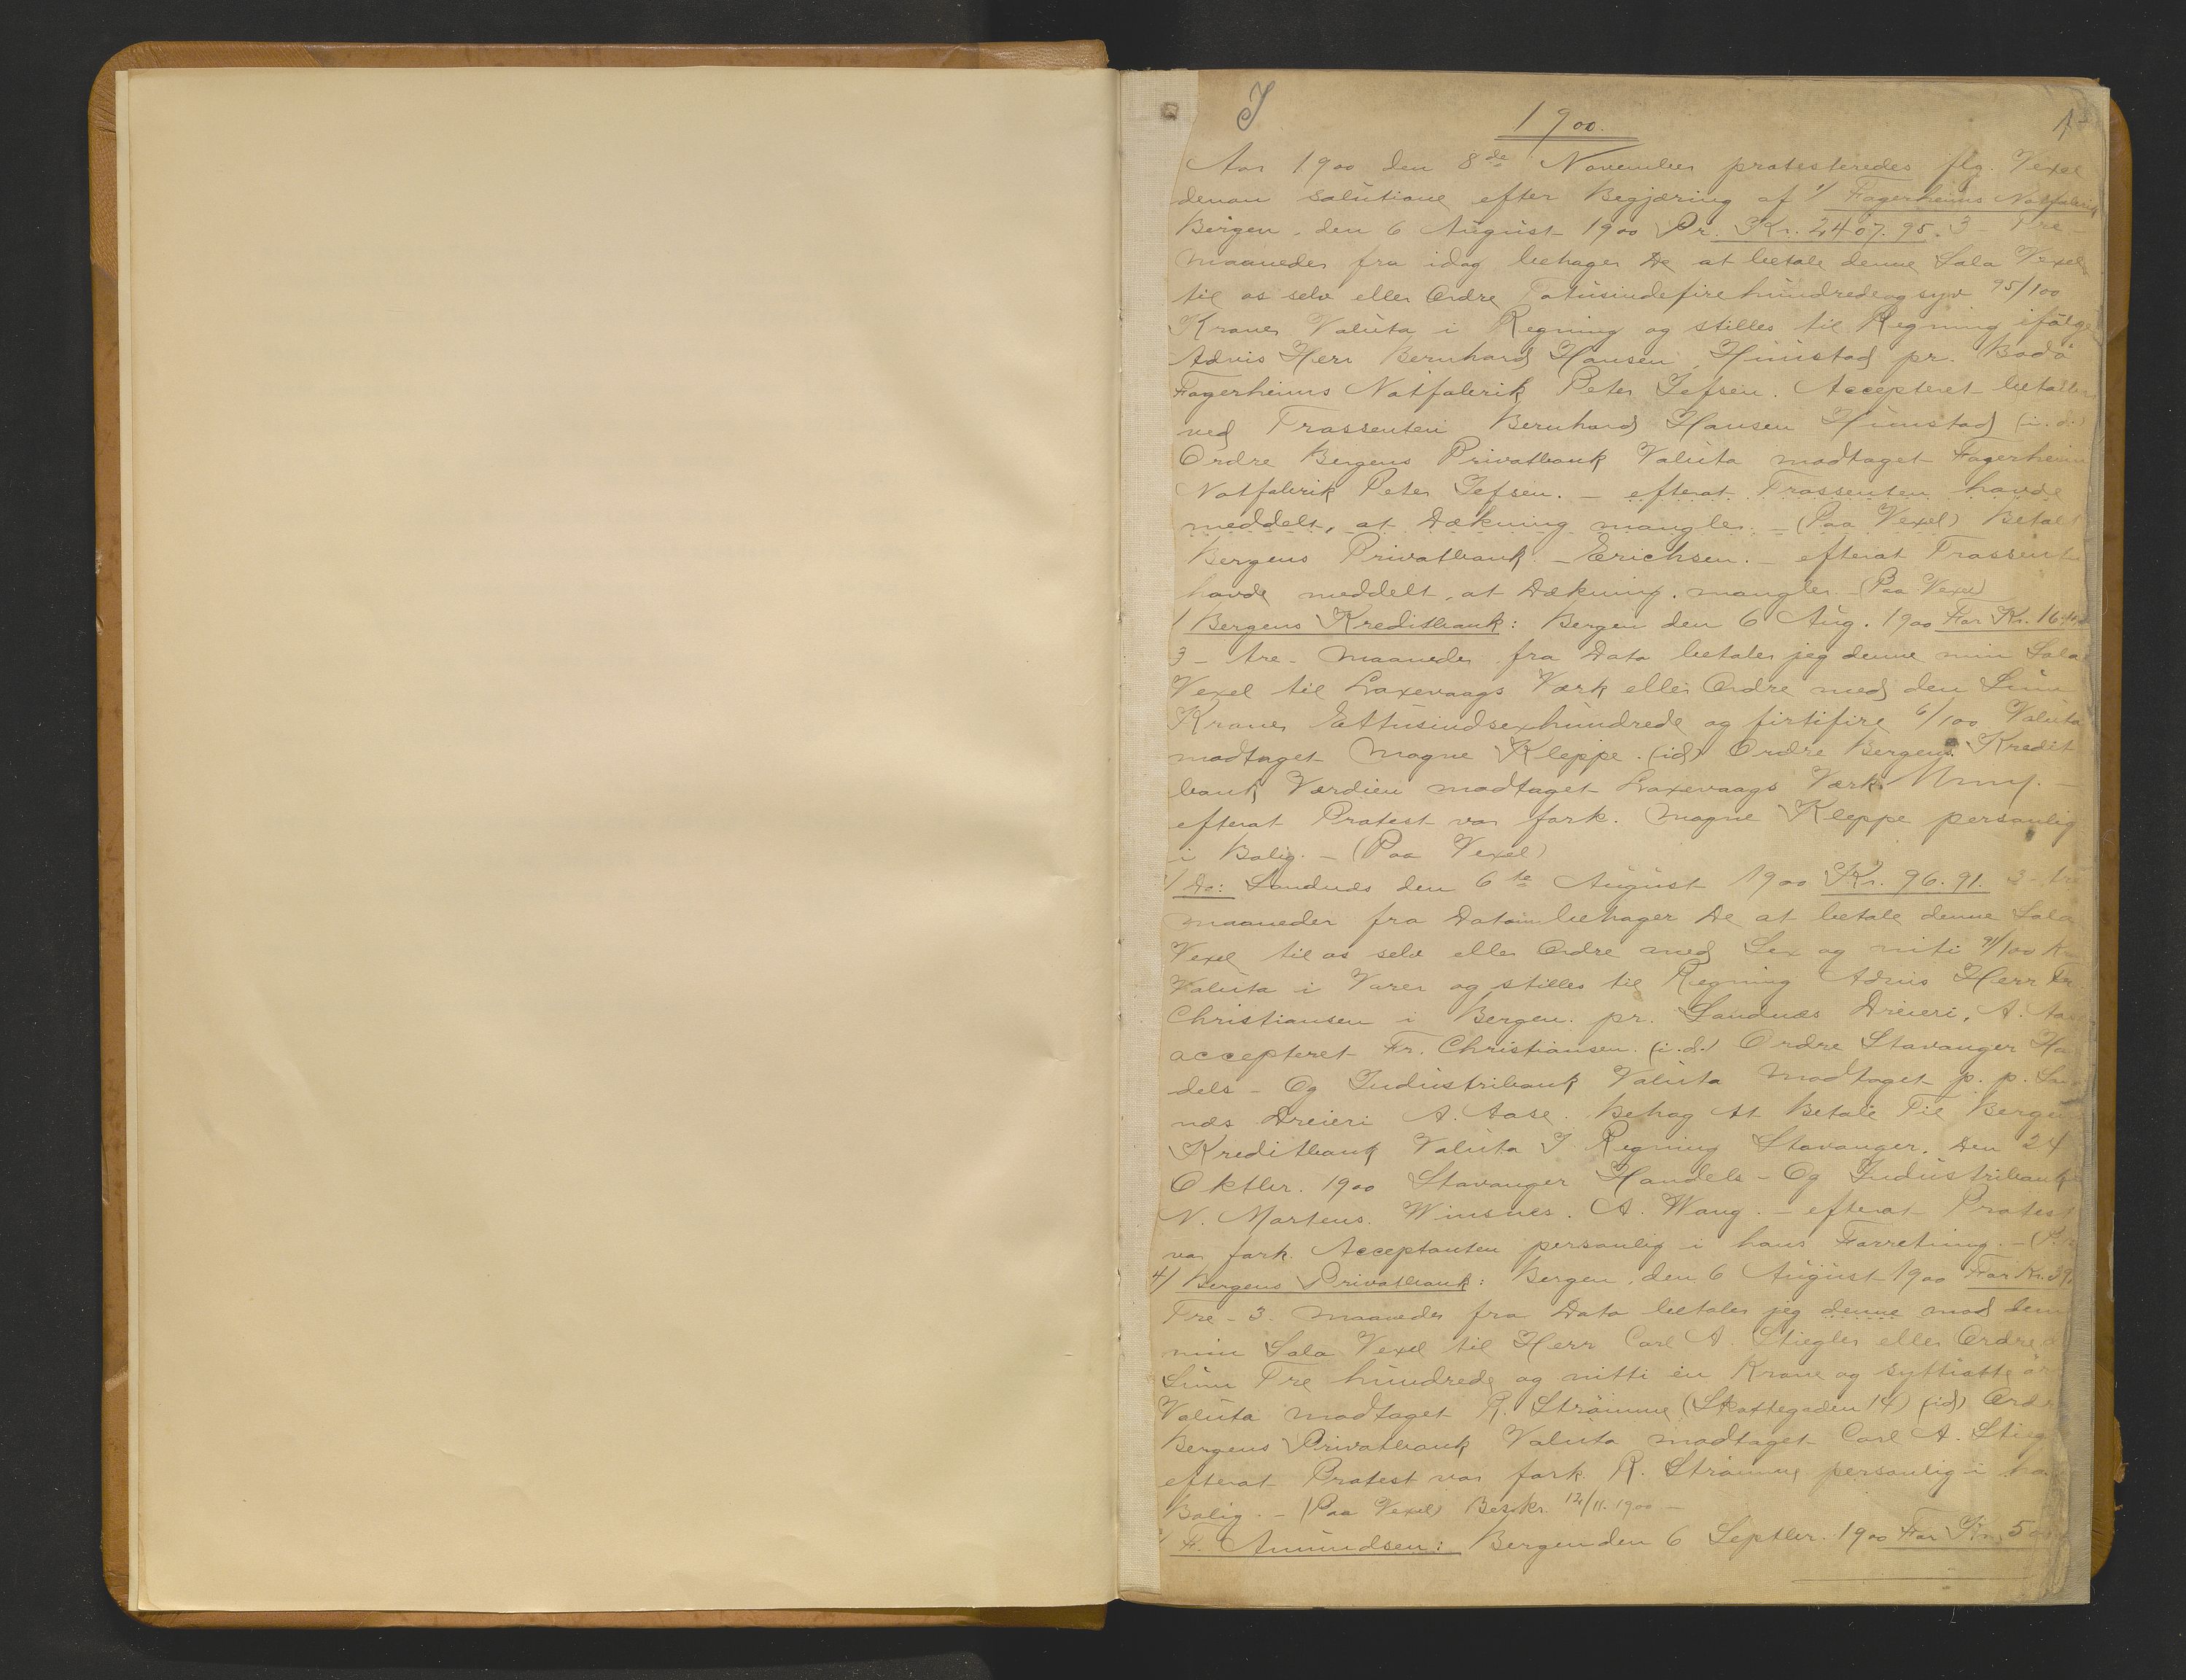 I
1900.
Aar 1900 den 8de November protesteredes flg. Vexel
denon solutione efter Begjæring af 1/ Fagerheims Notfabrik
Bergen, den 6 August 1900 Pr. Kr. 2407.95. 3 - Tre -
Maaneder fra idag behager De at betale denne Sola Vexel
til os selv eller Ordre Totusindefirehundredeogsyv 95/100
Kroner Valuta i Regning og stilles til Regning ifølge
Advis Herr Bernhard Hansen, Hunstad pr. Bodø
Fagerheims Notfabrik Peter Jefsen. Accepteret betales
ved Trassenten Bernhard Hansen Hunstad (i.d.)
Ordre Bergens Privatbank Valuta modtaget Fagerheim
Notfabrik Peter Jefsen. - efterat Trassenten havde
meddelt, at Dækning mangler. - (Paa Vexel) Betalt
Bergens Privatbank. - Erichsen. - efterat Trassent
havde meddelt, at Dækning mangler. (Paa Vexel)
Bergens Kreditbank: Bergen den 6 Aug. 1900 For Kr. 1644
3 - tre - Maaneder fra Dato betaler jeg denne min Sola
Vexel til Laxevaags Værk eller Ordre med den Sum
Kroner Ettusindsexhundrede og firtifire 6/100 Valuta
modtaget Magne Kleppe. (id) Ordre Bergens Kredit
bank Værdien modtaget Laxevaags Værk
efterat Protest var fork. Magne Kleppe personlig
i Bolig. - (Paa Vexel)
Do: Sandnæs den 6te August 1900 Kr. 96.91. 3 - tre
maaneder fra Datum behager De at betale denne Sola
Vexel til os selv eller Ordre med Sex og niti 91/100 Kr
Valuta i Varer og stilles til Regning Advis Herr Fr.
Christiansen i Bergen. pr. Sandnæs Dreieri, A. Aase
accepteret Fr. Christiansen. (i.d.) Ordre Stavanger Ha
dels - Og Industribank Valuta Modtaget p. p. San
næs Dreieri A. Aase. Behag At Betale Til Bergens
Kreditbank Valuta I Regning Stavanger, Den 24
Oktbr. 1900 Stavanger Handels - Og Industribank
N. Martens. Winsnes. A. Wang. - efterat Protest
var fork. Acceptanten personlig i hans Forretning. - (P.
4/ Bergens Privatbank: Bergen, den 6 August 1900 For Kr. 39
Tre - 3. Maaneder fra Dato betaler jeg denne mod den
min Sola Vexel til Herr Carl A. Stiegler eller Ordre
Sum Tre hundrede og nitti en Krone og syttiotte ør
Valuta modtaget R. Strømme (Skottegaden 14) (id) Ord
Bergens Privatbank Valuta modtaget Carl A. Stieg
efterat Protest var fork. R. Strømme personlig i ha
Bolig. - (Paa Vexel) Beskr. 12/11. 1900 -
F. Amundsen: Bergen den 6 Septbr. 1900 For Kr. 50